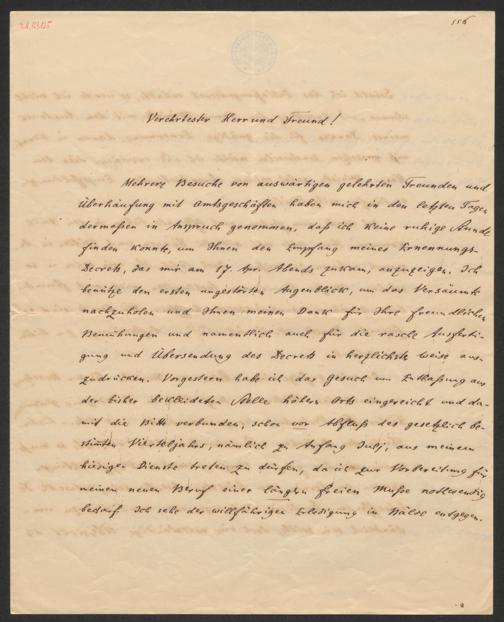 556
Verehrtester Herr und Freund!
Mehrere Besuche von auswärtigen gelehrten Freunden und
Überhäufung mit Amtsgeschäften haben mich in den letzten Tagen
dermaßen in Anspruch genommen, daß ich keine ruhige Stunde
finden konnte, um Ihnen den Empfang meines Ernennungs-
Decrets, das mir am 17. Abends zukam, anzuzeigen. Ich
benütze den ersten ungestörten Augenblick, um das Versäumte
nachzuholen und Ihnen meinen Dank für Ihre freundlichen
Bemühungen und namentlich auch für die rasche Ausferti-
gung und Übersendung des Decrets in herzlichster Weise aus-
zudrücken. Vorgestern habe ich das Gesuch um Entlaßung aus
der bisher bekleideten Stelle höhern Orts eingereicht und da-
mit die Bitte verbunden, schon vor Abfluß des gesetzlich be-
stimten Vierteljahrs, nämlich zu Anfang Julj, aus meinem
hiesigen Dienste treten zu dürfen, da ich zur Vorbereitung für
meinen neuen Beruf einer längern freien Muße nothwendig
bedarf. Ich sehe der willfährigen Erledigung in Bälde entgegen.